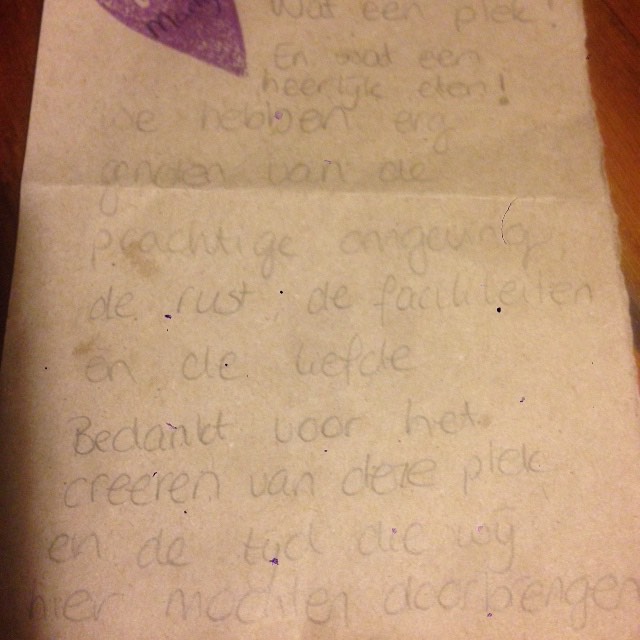 Wat een plek!
En wat een
heerlijk eten!
We hebben erg
genoten van de
prachtige omgeving,
de rust, de faciliteiten
en de liefde
Bedankt voor het
creëren van deze plek
en de tijd die wij
hier mochten doorbrengen